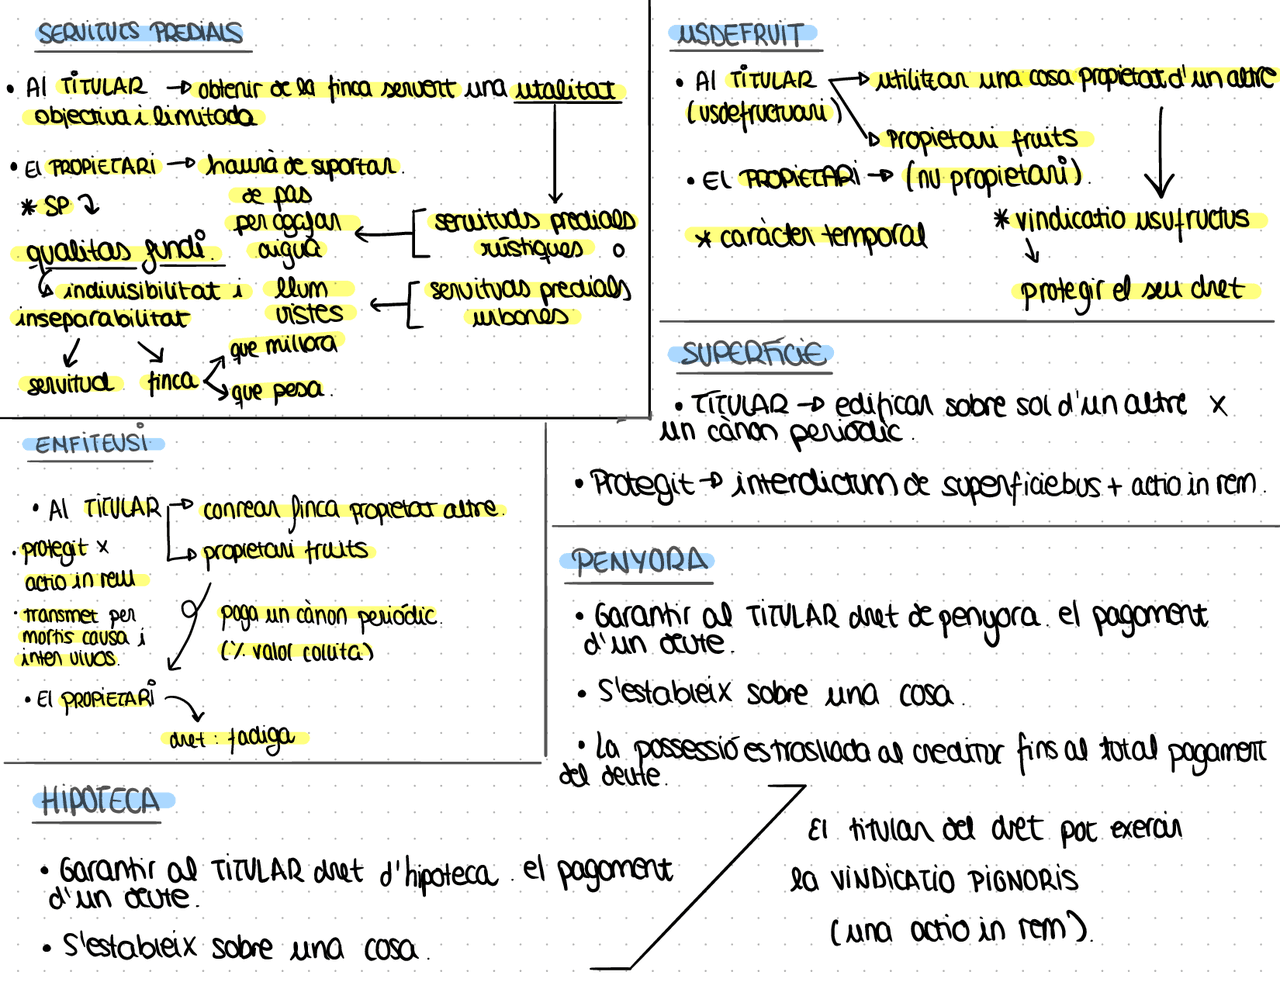 SERVITUTS PREDIALS
• Al TITULAR → obtenir de la finca servent una utalitat
objectiva i limitada
• El PROPIETARI → haurà de suportar.
* SP
qualitas fundi.
indivisibilitat i
inseparabilitat
servitud finca
que millora
que pesa.
de pas
per agafar
aigua
servituds predials
rústiques o
llum
vistes
servituds predials
urbanes
USDEFRUIT
• Al TITULAR → utilitzar una cosa propietat d'un altre
(usdefructuari)
Propietari fruits
• El PROPIETARI → (nu propietari).
* vindicatio usufructus
* caràcter temporal
protegir el seu dret
SUPERFÍCIE
• TITULAR → edificar sobre sol d'un altre x
un cànon periòdic.
• Protegit → interdictum de superficiebus + actio in rem.
EMFITEUSI
• Al TITULAR → conrear finca propietat altre.
→ propietari fruits
• protegit x
actio in rem
• transmet per
mortis causa i
inter vivos.
paga un cànon periòdic.
(% valor collita)
• El PROPIETARI
dret: fadiga
PENYORA
• Garantir al TITULAR dret de penyora. el pagament
d'un deute.
• S'estableix sobre una cosa.
• La possessió es trasllada al creditor fins al total pagament
del deute.
HIPOTECA
• Garantir al TITULAR dret d'hipoteca. el pagament
d'un deute.
• S'estableix sobre una cosa.
El titular del dret pot exercir
la VINDICATIO PIGNORIS
(una actio in rem).